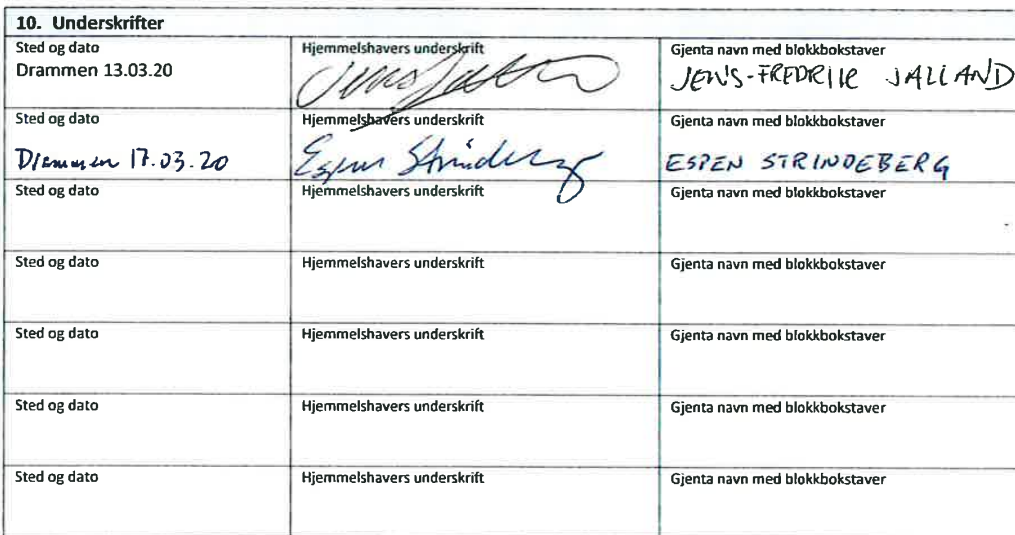 10. Underskrifter
Sted og dato Hjemmelshavers underskrift Gjenta navn med blokkbokstaver
Drammen 13.03.20 JENS-FREDRIK JALLAND
Sted og dato Hjemmelshavers underskrift Gjenta navn med blokkbokstaver
Drammen 17.03.20 Espen Strindeberg ESPEN STRINDEBERG
Sted og dato Hjemmelshavers underskrift Gjenta navn med blokkbokstaver
Sted og dato Hjemmelshavers underskrift Gjenta navn med blokkbokstaver
Sted og dato Hjemmelshavers underskrift Gjenta navn med blokkbokstaver
Sted og dato Hjemmelshavers underskrift Gjenta navn med blokkbokstaver
Sted og dato Hjemmelshavers underskrift Gjenta navn med blokkbokstaver